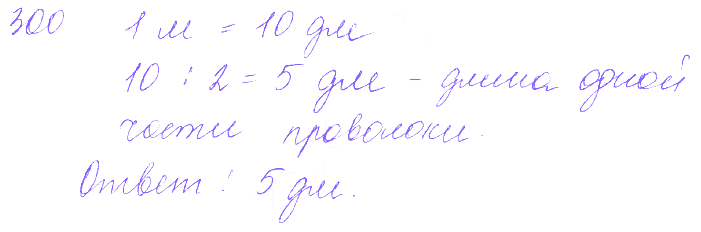 300 1 м = 10 дм
10 : 2 = 5 дм - длина одной
части проволоки.
Ответ: 5 дм.